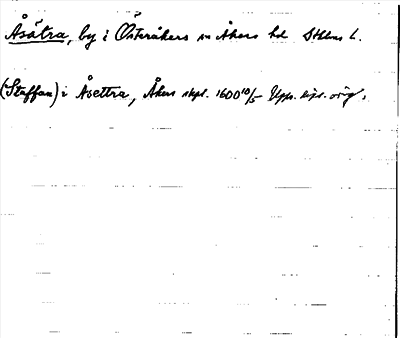 Åsätra, by i Österåkers sn Åkers hd Sthlms l.
(Staffan) i Åsettra, Åkers skpl. 1600 10/5 Upps. dipl. orig.